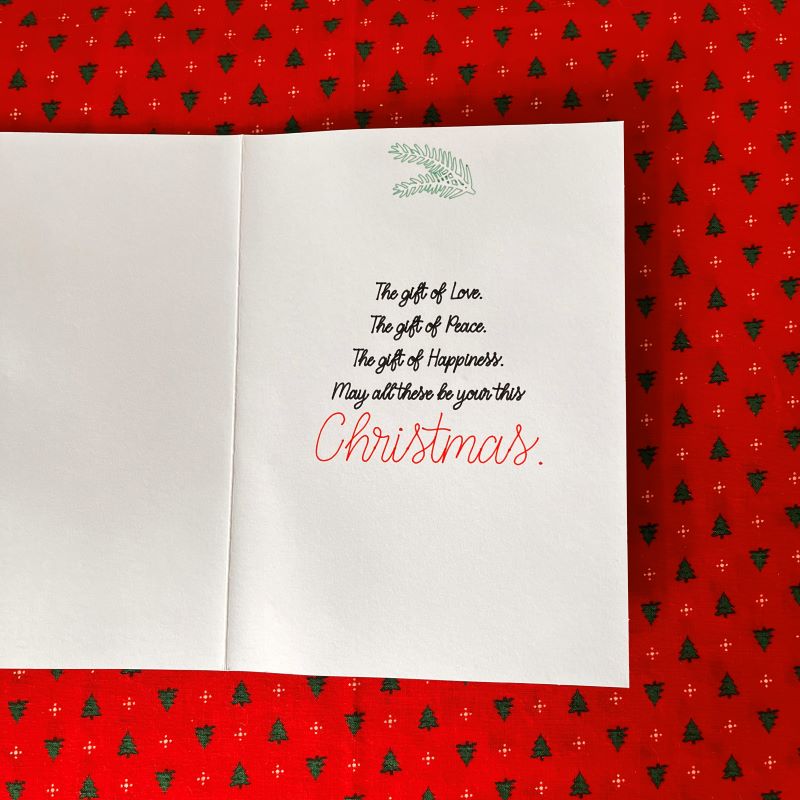 The gift of Love.
The gift of Peace.
The gift of Happiness.
May all these be your this
Christmas.